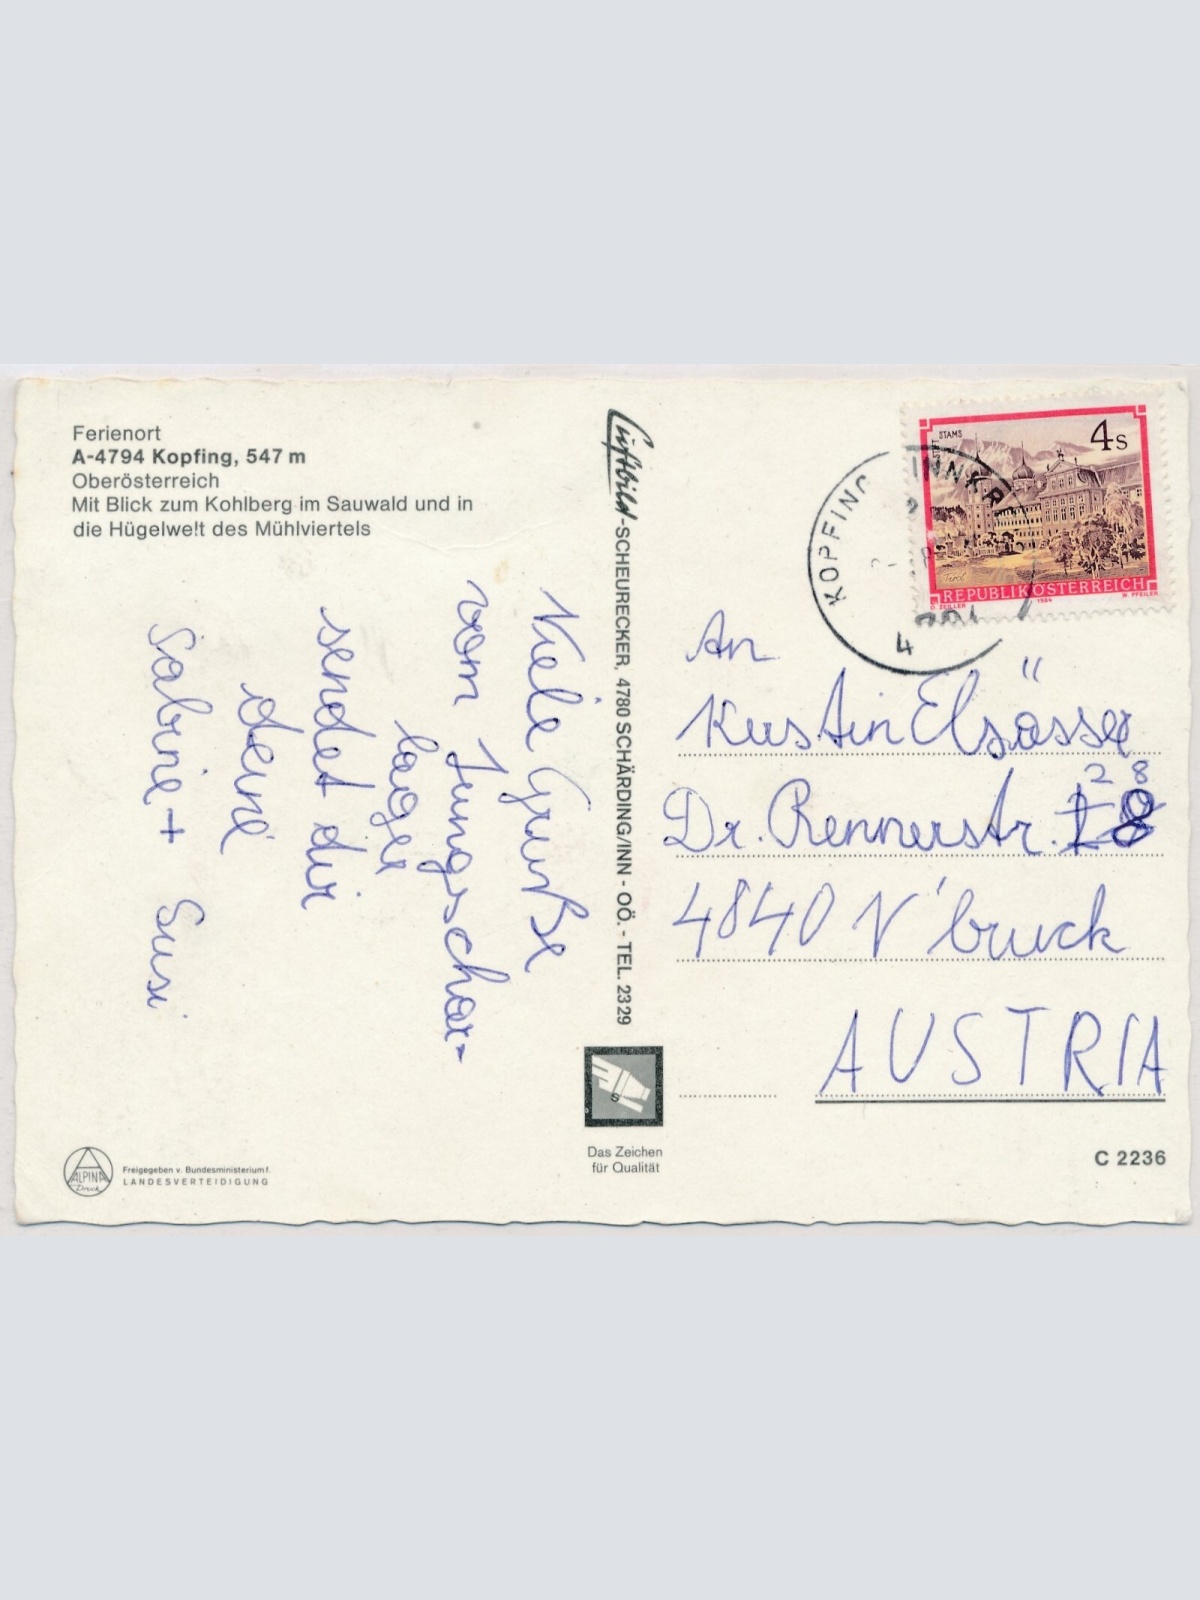 Ferienort
A-4794 Kopfing, 547 m
Oberösterreich
Mit Blick zum Kohlberg im Sauwald und in
die Hügelwelt des Mühlviertels
Viele Grüße
vom Jungschar-
lager
sendet dir
deine
Sabine + Susi
Luftbild-SCHEURECKER, 4780 SCHÄRDING/INN - OÖ. - TEL. 2329
STIFT STAMS
4s
Tirol
REPUBLIK ÖSTERREICH
O. ZEILLER 1984 W. PFEILER
KOPFING INNKR
An
Kerstin Elsässer
Dr. Rennerstr. 28
4840 V'bruck
AUSTRIA
S
Das Zeichen
für Qualität
C 2236
ALPINA
Druck
Freigegeben v. Bundesministerium f.
LANDESVERTEIDIGUNG